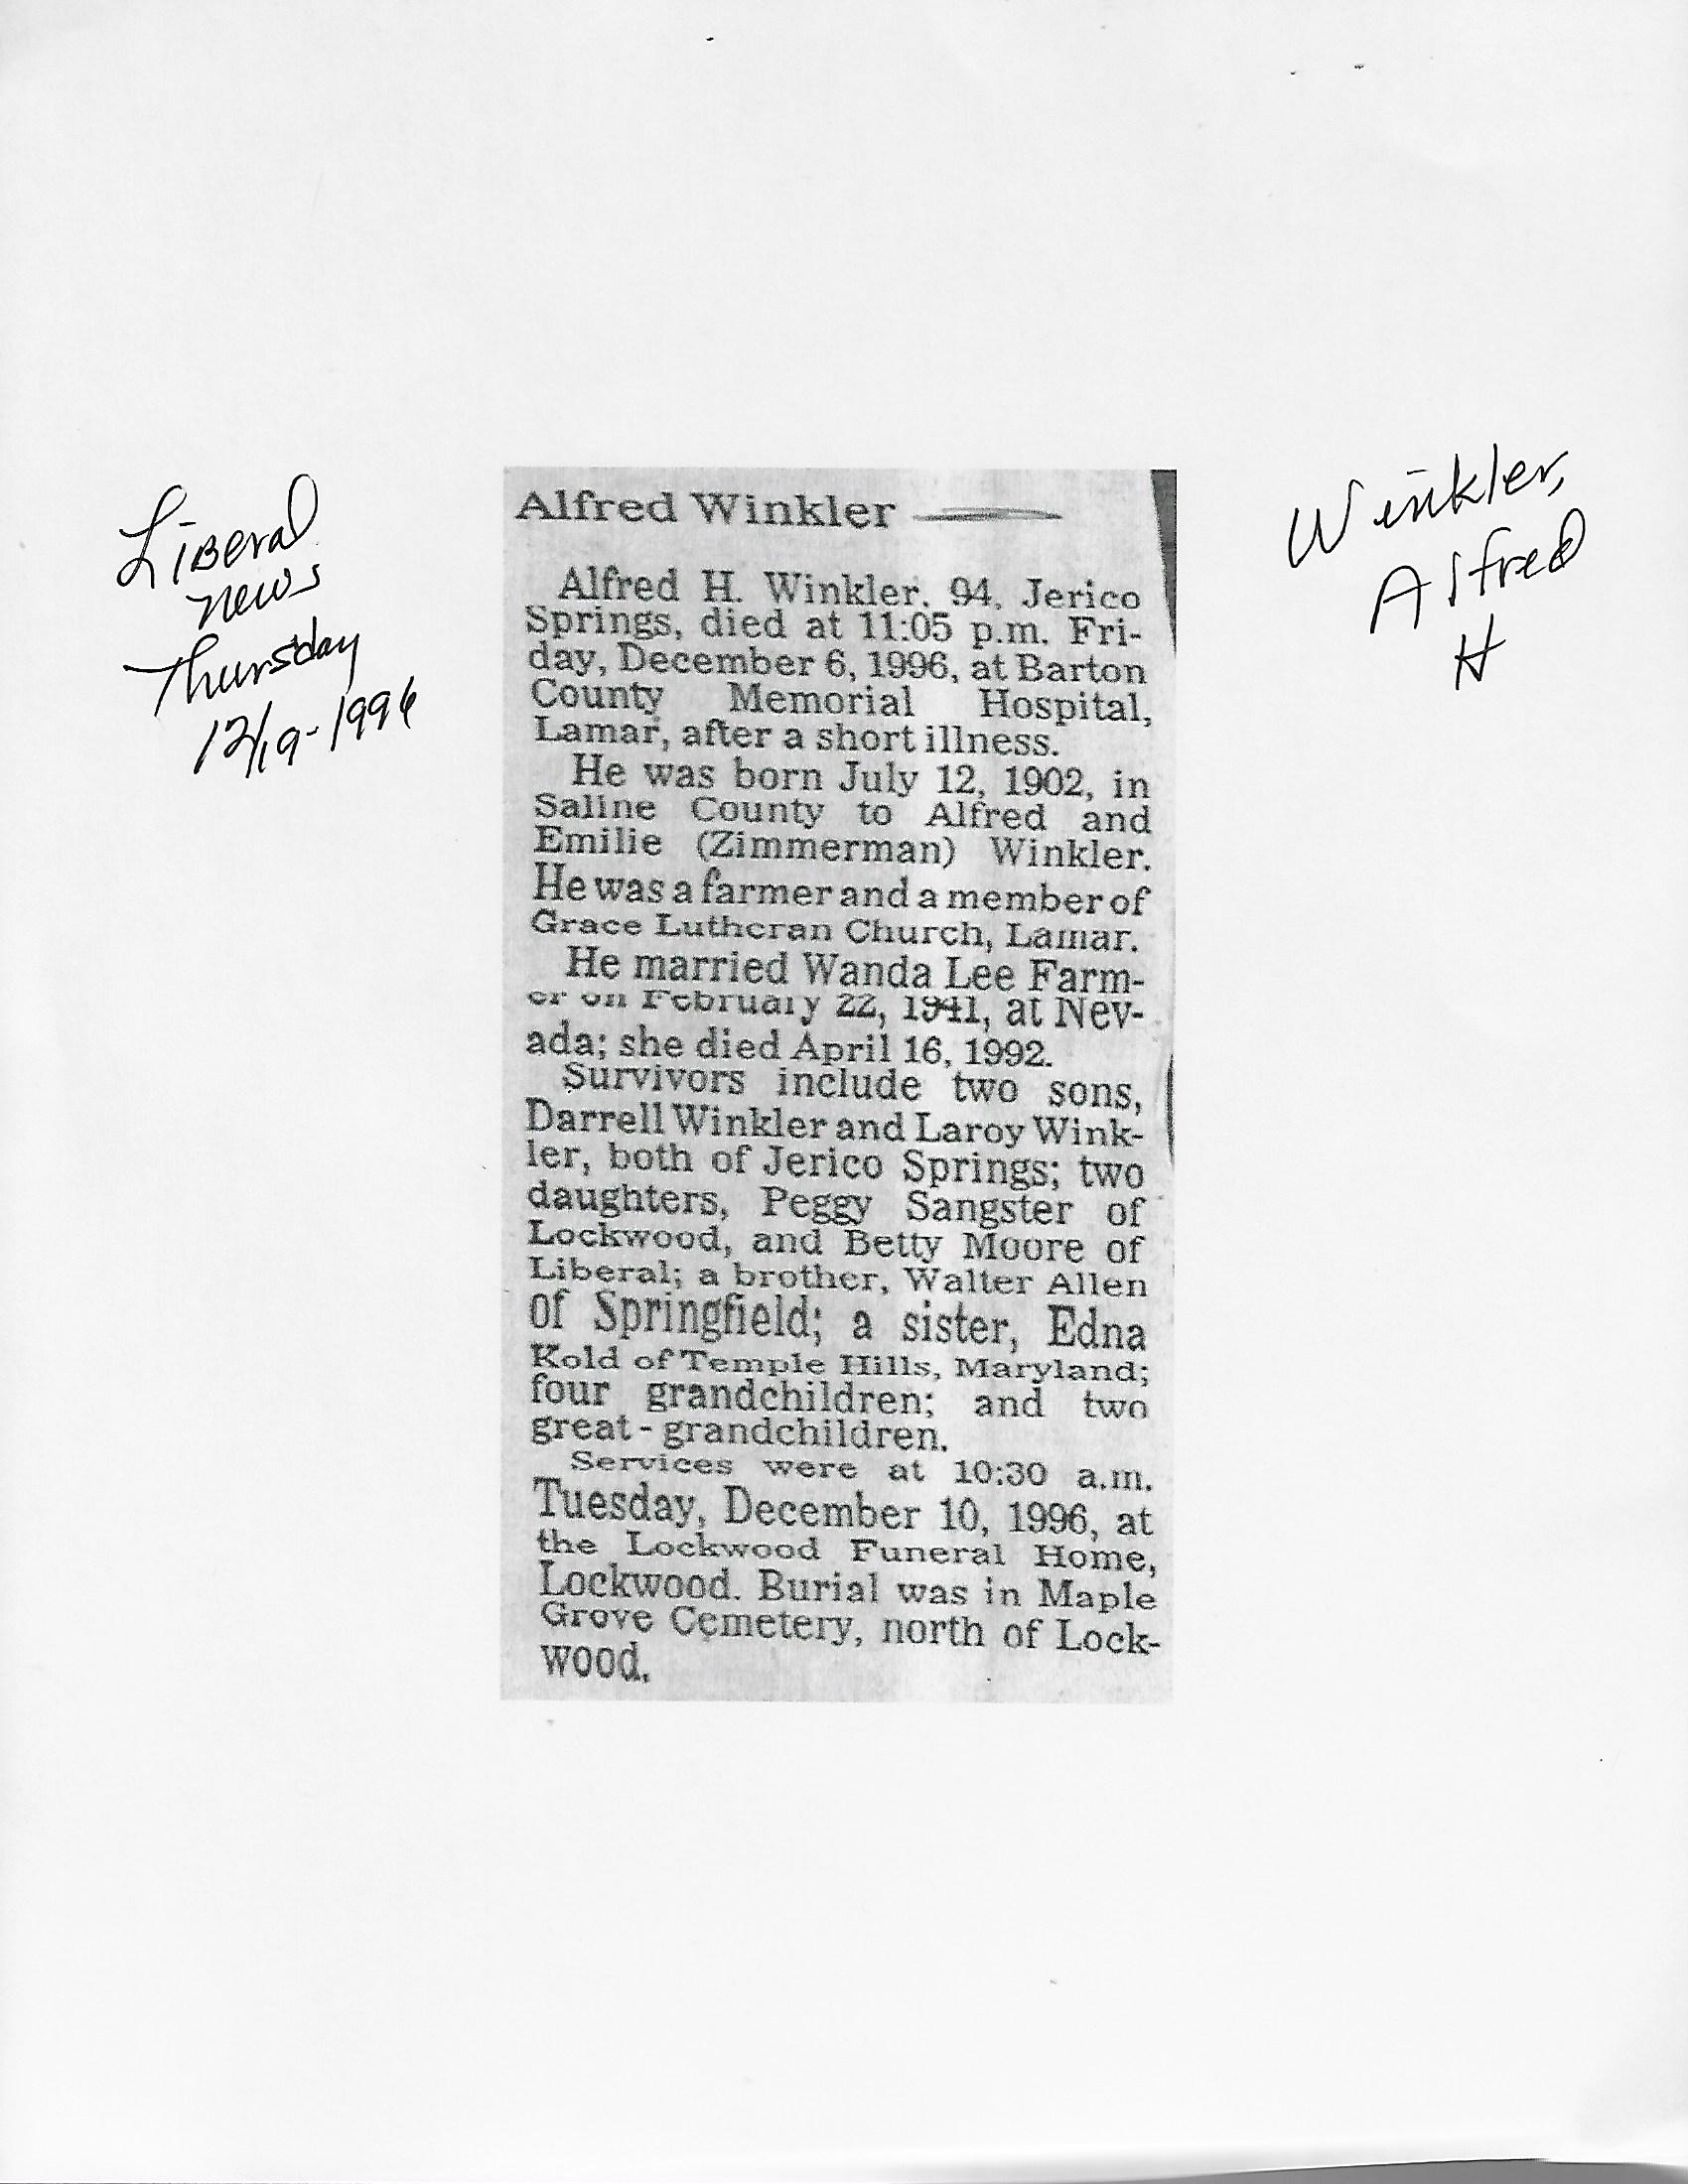 Liberal
news
Thursday
12/19-1996
Winkler,
Alfred
H
Alfred Winkler
Alfred H. Winkler, 94, Jerico
Springs, died at 11:05 p.m. Fri-
day, December 6, 1996, at Barton
County Memorial Hospital,
Lamar, after a short illness.
He was born July 12, 1902, in
Saline County to Alfred and
Emilie (Zimmerman) Winkler.
He was a farmer and a member of
Grace Lutheran Church, Lamar.
He married Wanda Lee Farm-
er on February 22, 1941, at Nev-
ada; she died April 16, 1992.
Survivors include two sons,
Darrell Winkler and Laroy Wink-
ler, both of Jerico Springs; two
daughters, Peggy Sangster of
Lockwood, and Betty Moore of
Liberal; a brother, Walter Allen
of Springfield; a sister, Edna
Kold of Temple Hills, Maryland;
four grandchildren; and two
great-grandchildren.
Services were at 10:30 a.m.
Tuesday, December 10, 1996, at
the Lockwood Funeral Home,
Lockwood. Burial was in Maple
Grove Cemetery, north of Lock-
wood.